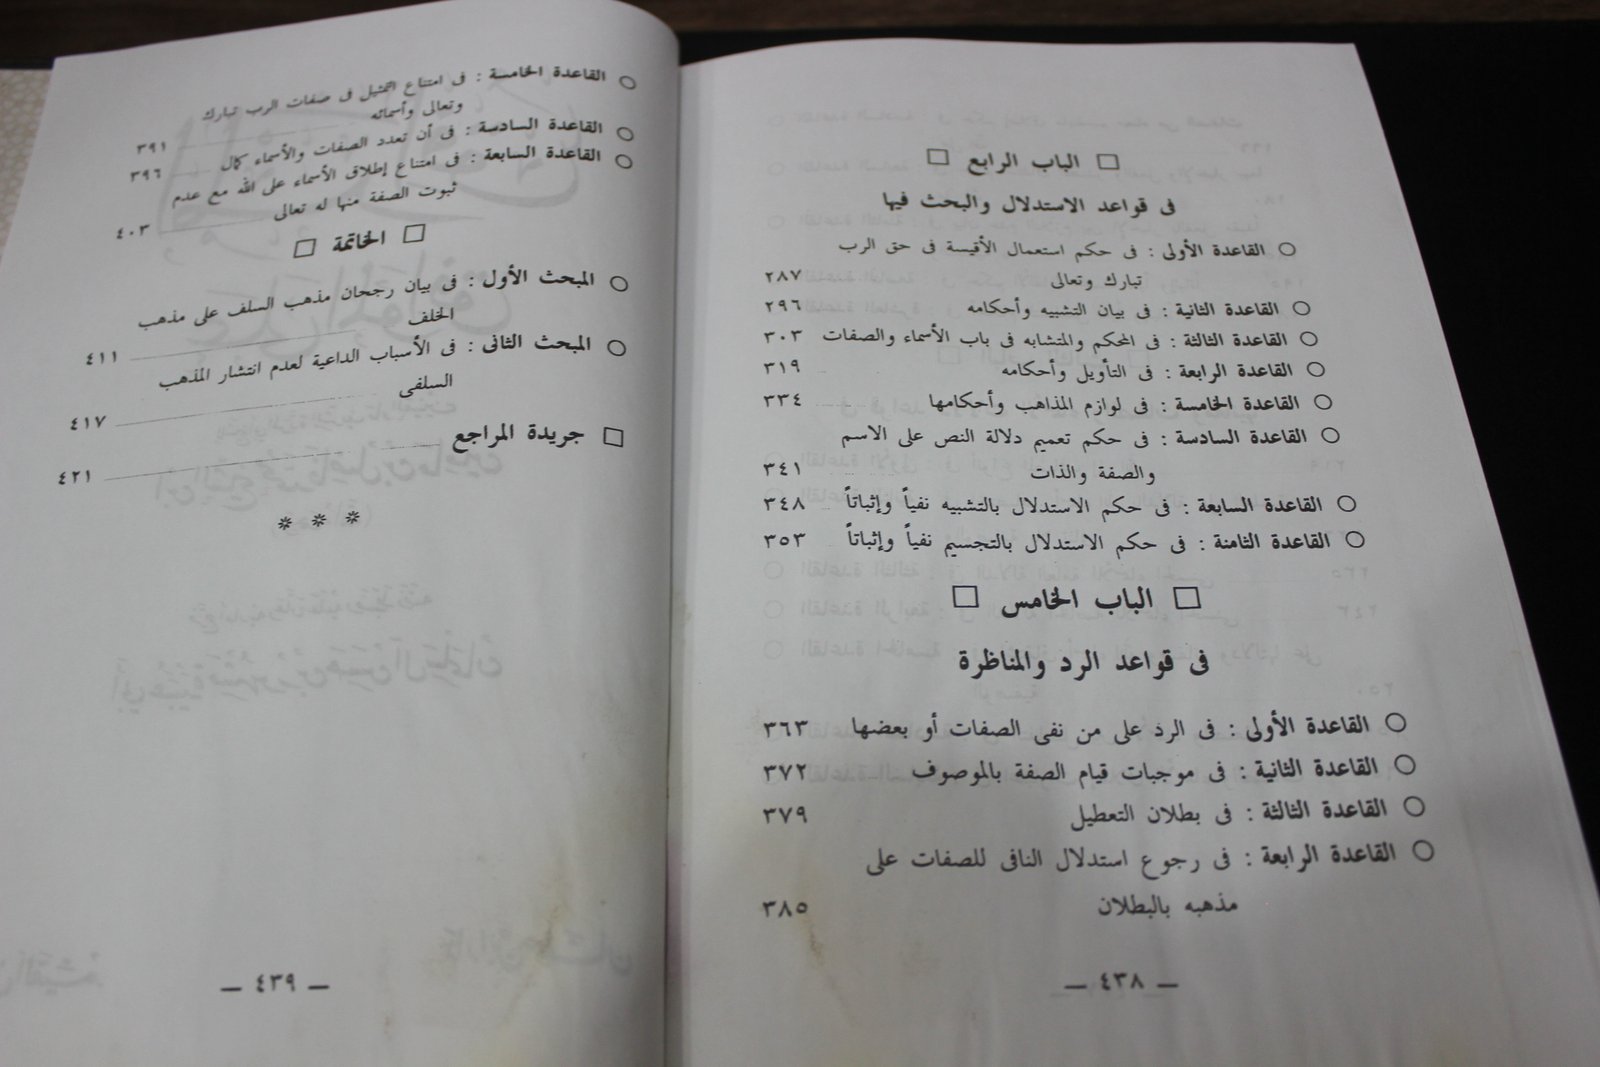 □ الباب الرابع □
فى قواعد الاستدلال والبحث فيها
○ القاعدة الأولى : فى حكم استعمال الأقيسة فى حق الرب
تبارك وتعالى ٢٨٧
○ القاعدة الثانية : فى بيان التشبيه وأحكامه ٢٩٦
○ القاعدة الثالثة : فى المحكم والمتشابه فى باب الأسماء والصفات ٣٠٣
○ القاعدة الرابعة : فى التأويل وأحكامه ٣١٩
○ القاعدة الخامسة : فى لوازم المذاهب وأحكامها ٣٣٤
○ القاعدة السادسة : فى حكم تعميم دلالة النص على الاسم
والصفة والذات ٣٤١
○ القاعدة السابعة : فى حكم الاستدلال بالتشبيه نفياً وإثباتاً ٣٤٨
○ القاعدة الثامنة : فى حكم الاستدلال بالتجسيم نفياً وإثباتاً ٣٥٣
□ الباب الخامس □
فى قواعد الرد والمناظرة
○ القاعدة الأولى : فى الرد على من نفى الصفات أو بعضها ٣٦٣
○ القاعدة الثانية : فى موجبات قيام الصفة بالموصوف ٣٧٢
○ القاعدة الثالثة : فى بطلان التعطيل ٣٧٩
○ القاعدة الرابعة : فى رجوع استدلال النافى للصفات على
مذهبه بالبطلان ٣٨٥
— ٤٣٨ —
○ القاعدة الخامسة : فى امتناع التمثيل فى صفات الرب تبارك
وتعالى وأسمائه ٣٩١
○ القاعدة السادسة : فى أن تعدد الصفات والأسماء كمال ٣٩٦
○ القاعدة السابعة : فى امتناع إطلاق الأسماء على الله مع عدم
ثبوت الصفة منها له تعالى ٤٠٣
□ الخاتمة □
○ المبحث الأول : فى بيان رجحان مذهب السلف على مذهب
الخلف ٤١١
○ المبحث الثانى : فى الأسباب الداعية لعدم انتشار المذهب
السلفى ٤١٧
□ جريدة المراجع ٤٢١
* * *
— ٤٣٩ —